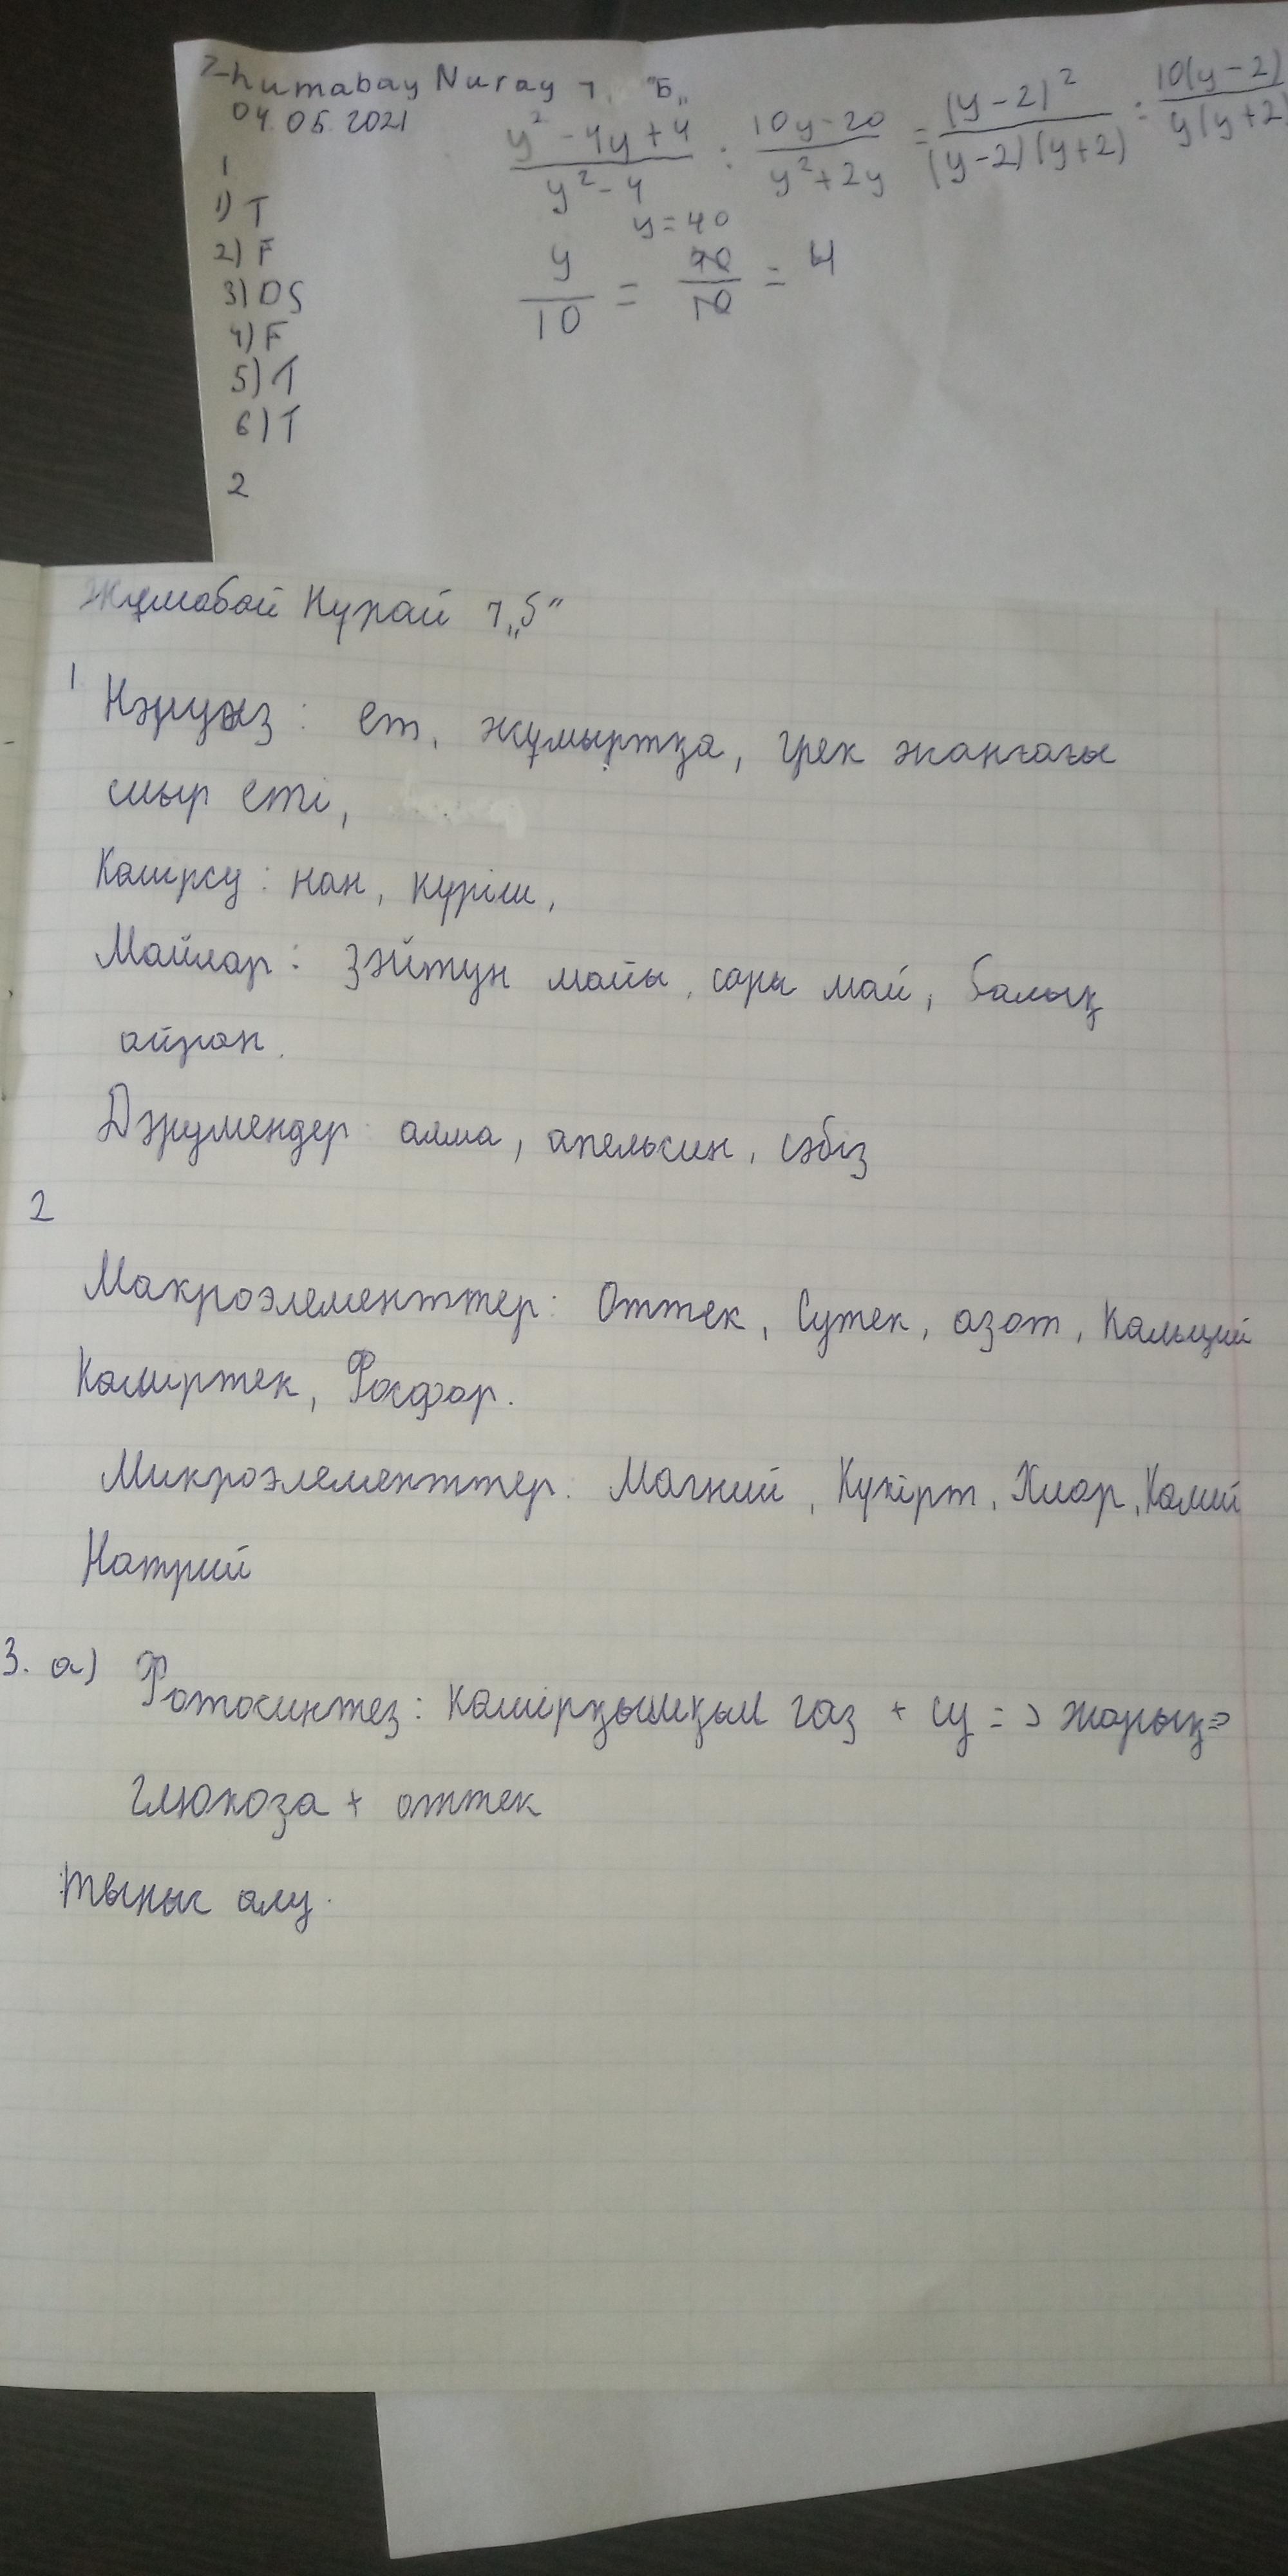 Zhumabay Nuray 7 "Б"
04.05.2021
1
1) T
2) F
3) DS
4) F
5) T
6) T
2
y² - 4y + 4 / y² - 4 : 10y - 20 / y² + 2y = (y - 2)² / (y - 2)(y + 2) : 10(y - 2) / y(y + 2)
y = 40
y / 10 = 40 / 10 = 4
Жұмабай Нұрай 7 „Б"
1
Нәруыз: ет, жұмыртқа, грек жаңғағы
сиыр еті,
Көмірсу: нан, күріш,
Майлар: зәйтүн майы, сары май, балық
айран.
Дәрумендер: алма, апельсин, сәбіз
2
Макроэлементтер: Оттек, Сутек, азот, Кальций
Көміртек, Фосфор.
Микроэлементтер: Магний, Күкірт, Хлор, Калий
Натрий
3. а) Фотосинтез: көмірқышқыл газ + су => жарық =>
глюкоза + оттек
Тыныс алу.